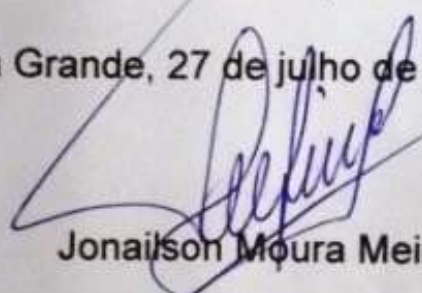 Grande, 27 de julho de
Jonailson Moura Mei